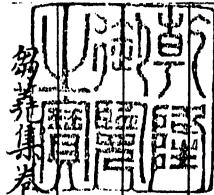 乾隆
御覽
之寶
芻蕘集卷